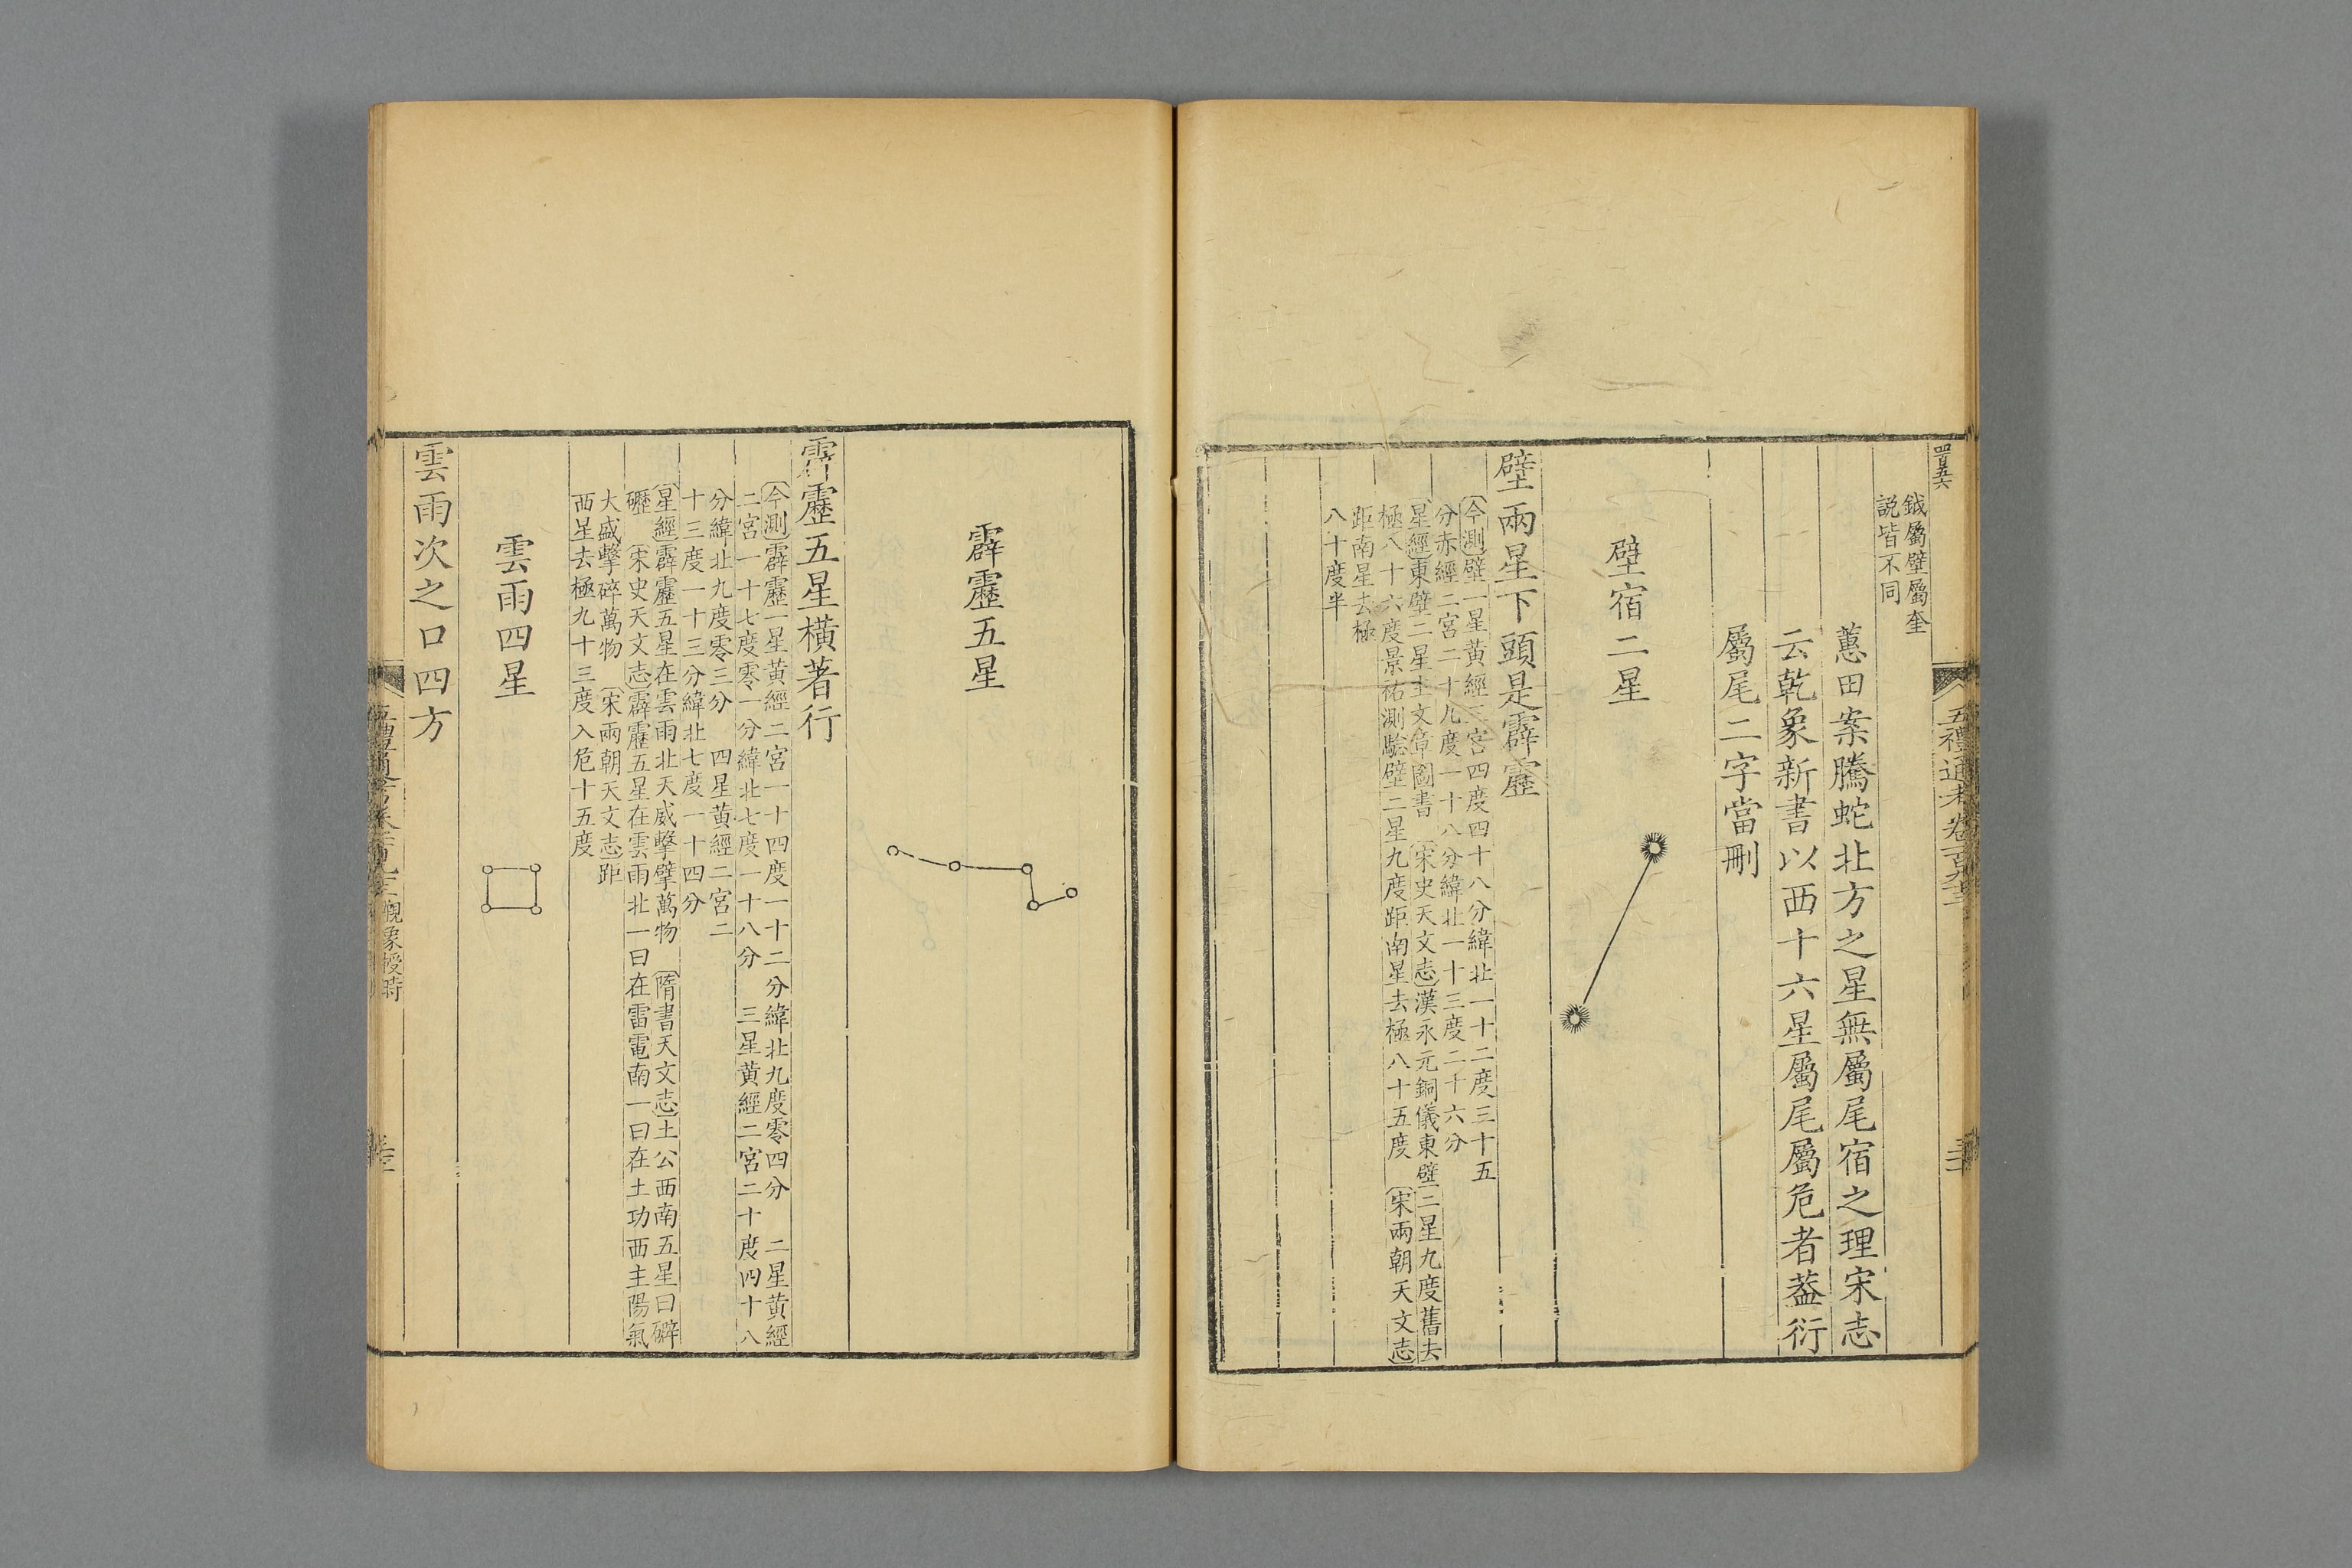 四百五六
五禮通考卷一百九十三
三十二
鉞屬壁屬奎
説皆不同
蕙田案騰蛇北方之星無屬尾宿之理宋志
云乾象新書以西十六星屬尾屬危者葢衍
屬尾二字當刪
壁宿二星
壁兩星下頭是霹靂
〔今測〕壁一星黃經三宮四度四十八分緯北一十二度三十五
分赤經二宮二十九度一十八分緯北一十三度二十六分
〔星經〕東壁二星主文章圖書 〔宋史天文志〕漢永元銅儀東壁二星九度舊去
極八十六度景祐測驗壁二星九度距南星去極八十五度 〔宋兩朝天文志〕
距南星去極
八十度半
霹靂五星
霹靂五星橫著行
〔今測〕霹靂一星黃經二宮一十四度一十二分緯北九度零四分 二星黃經
二宮一十七度零一分緯北七度一十八分 三星黃經二宮二十度四十八
分緯北九度零三分 四星黃經二宮二
十三度一十三分緯北七度一十四分
〔星經〕霹靂五星在雲雨北天威擊擘萬物 〔隋書天文志〕土公西南五星曰礔
礰 〔宋史天文志〕霹靂五星在雲雨北一曰在雷電南一曰在土功西主陽氣
大盛擊碎萬物 〔宋兩朝天文志〕距
西星去極九十三度入危十五度
雲雨四星
雲雨次之口四方
觀象授時